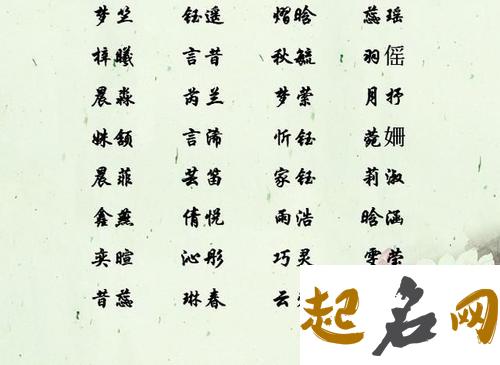 梦竺 钰遥 熠晗 蕊瑶
梓曦 言昔 秋毓 羽傜
晨淼 芮兰 梦萦 月抒
姝颔 言浠 忻钰 菀姗
晨菲 芸笛 家钰 莉淑
鑫燕 倩悦 雨浩 晗涵
奕暄 沁彤 巧灵 雯莹
昔蕊 琳春 云
起名网